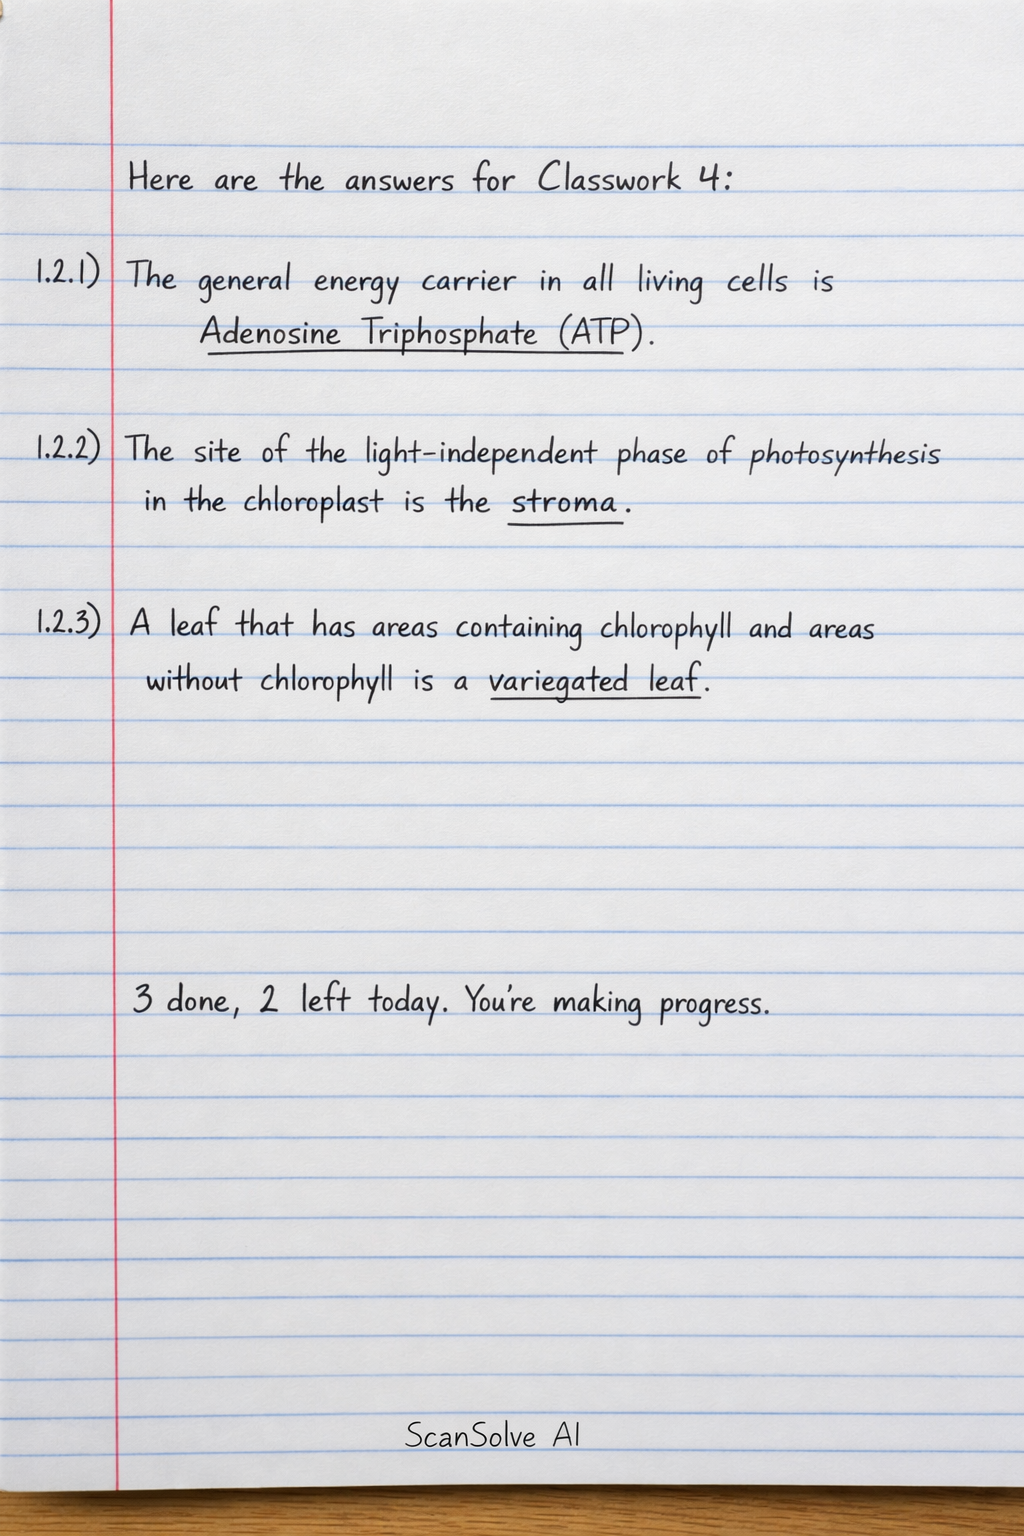 Here are the answers for Classwork 4:
1.2.1) The general energy carrier in all living cells is
Adenosine Triphosphate (ATP).
1.2.2) The site of the light-independent phase of photosynthesis
in the chloroplast is the stroma.
1.2.3) A leaf that has areas containing chlorophyll and areas
without chlorophyll is a variegated leaf.
3 done, 2 left today. You're making progress.
ScanSolve AI